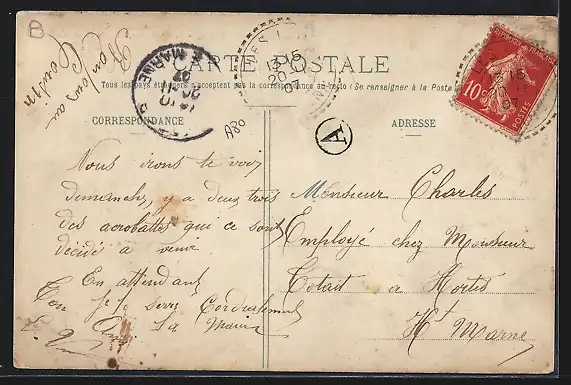 CARTE POSTALE
Tous les pays étrangers n'acceptent pas la correspondance au recto (Se renseigner à la Poste)
CORRESPONDANCE
ADRESSE
B
A80
A
Bonjour au
Cousin
Nous irons te voir
dimanche, y a deux trois
des acrobattes qui ce sont
décidé à venir
En attendant
Je te serre Cordialement
La Main
Ton
Monsieur Charles
Employé chez Monsieur
à Hortes
Hte Marne
REPUBLIQUE FRANÇAISE
10c
POSTES
MARNE
15
20
07